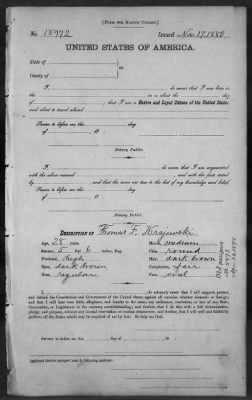 [FORM FOR NATIVE CITIZEN.]
No. 18972 Issued Nov. 17, 1880
UNITED STATES OF AMERICA.
State of
County of
I, do swear that I am born in
in or about the day
of , that I am a Native and Loyal Citizen of the United States,
and about to travel abroad
Sworn to before me this
day of , 18
Notary Public.
I, do swear that I am acquainted
with the above named , and with the facts stated
by him, and that the same are true to the best of my knowledge and belief.
Sworn to before me this
day of , 18
Notary Public.
DESCRIPTION OF Thomas F. Krajewski
Age, 28 years. Mouth, medium
Stature, 5 feet 6 inches, Eng. Chin, round
Forehead, high Hair, dark brown
Eyes, dark brown Complexion, fair
Nose, regular Face, oval
Old passport
I, do solemnly swear that I will support, protect,
and defend the Constitution and Government of the United States against all enemies, whether domestic or foreign;
and that I will bear true faith, allegiance, and loyalty to the same, any ordinance, resolution, or law of any State,
Convention, or Legislature to the contrary notwithstanding; and further, that I do this with a full determination,
pledge, and purpose, without any mental reservation or evasion whatsoever; and further, that I will well and faithfully
perform all the duties which may be required of me by law: So help me God.
Sworn to before me, this
day of , 18
Applicant desires passport sent to following address: